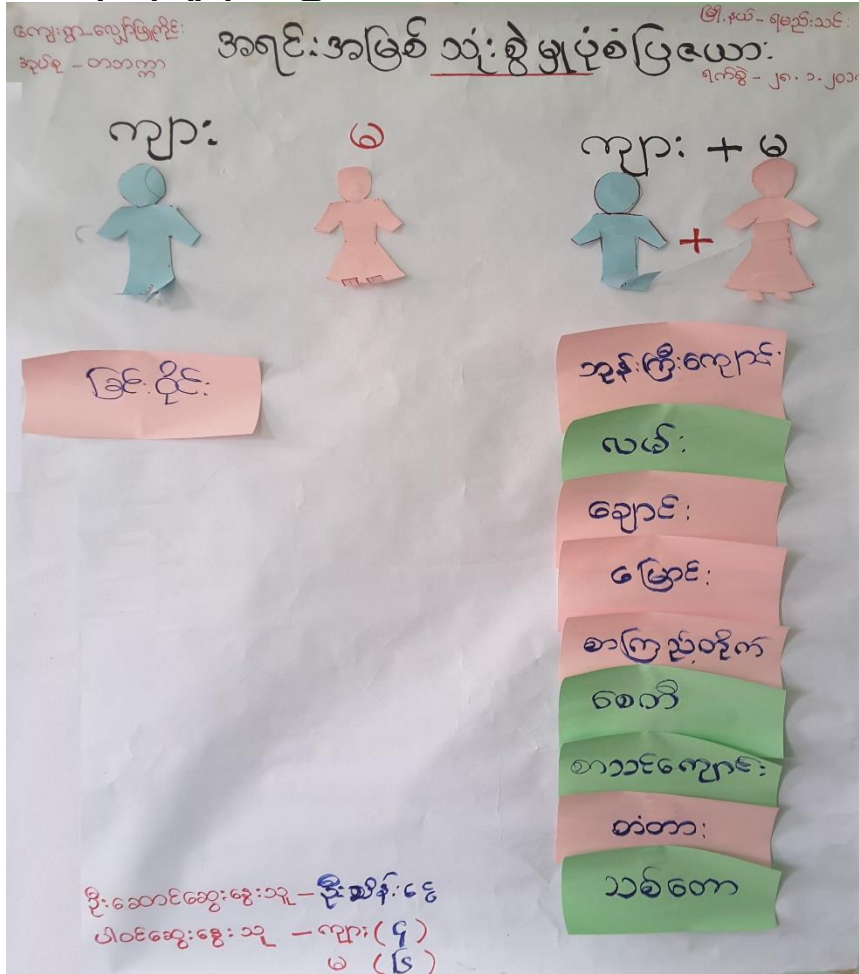 ကျေးရွာ-လျှော်ဖြူကိုင်း
အုပ်စု - တာတက္ကာ
အရင်းအမြစ် သုံးစွဲမှုပုံစံပြဇယား
မြို့နယ် - ရမည်းသင်း
ရက်စွဲ - ၂၈.၁.၂၀၁
ကျား
မ
ကျား + မ
+
ခြင်းဝိုင်း
ဘုန်းကြီးကျောင်း
လမ်း
ချောင်း
မြောင်း
စာကြည့်တိုက်
စေတီ
စာသင်ကျောင်း
တံတား
သစ်တော
ဦးဆောင်ဆွေးနွေးသူ - ဦးသိန်းငွေ
ပါဝင်ဆွေးနွေးသူ - ကျား (၄)
မ (၆)